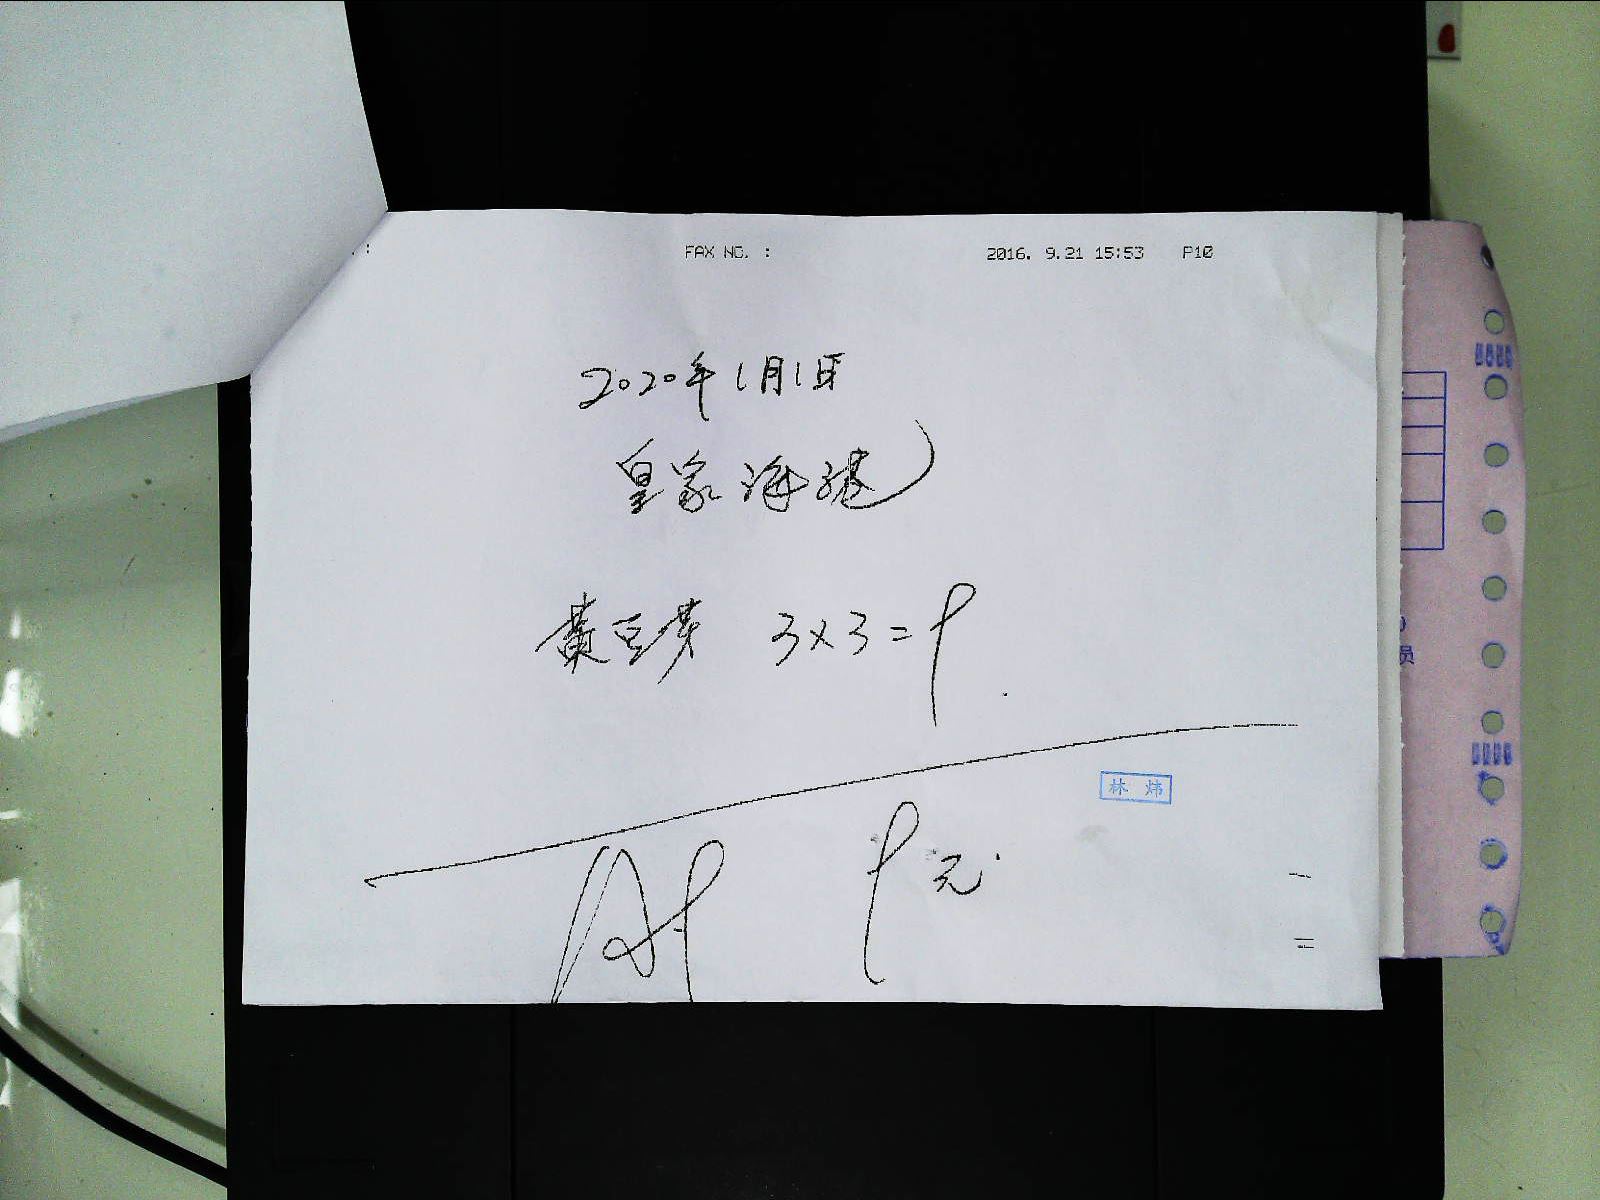 : FAX NO. : 2016. 9.21 15:53 P10
2020年1月1日
皇家海港
黄豆芽 3×3=9
林 炜
9元
员